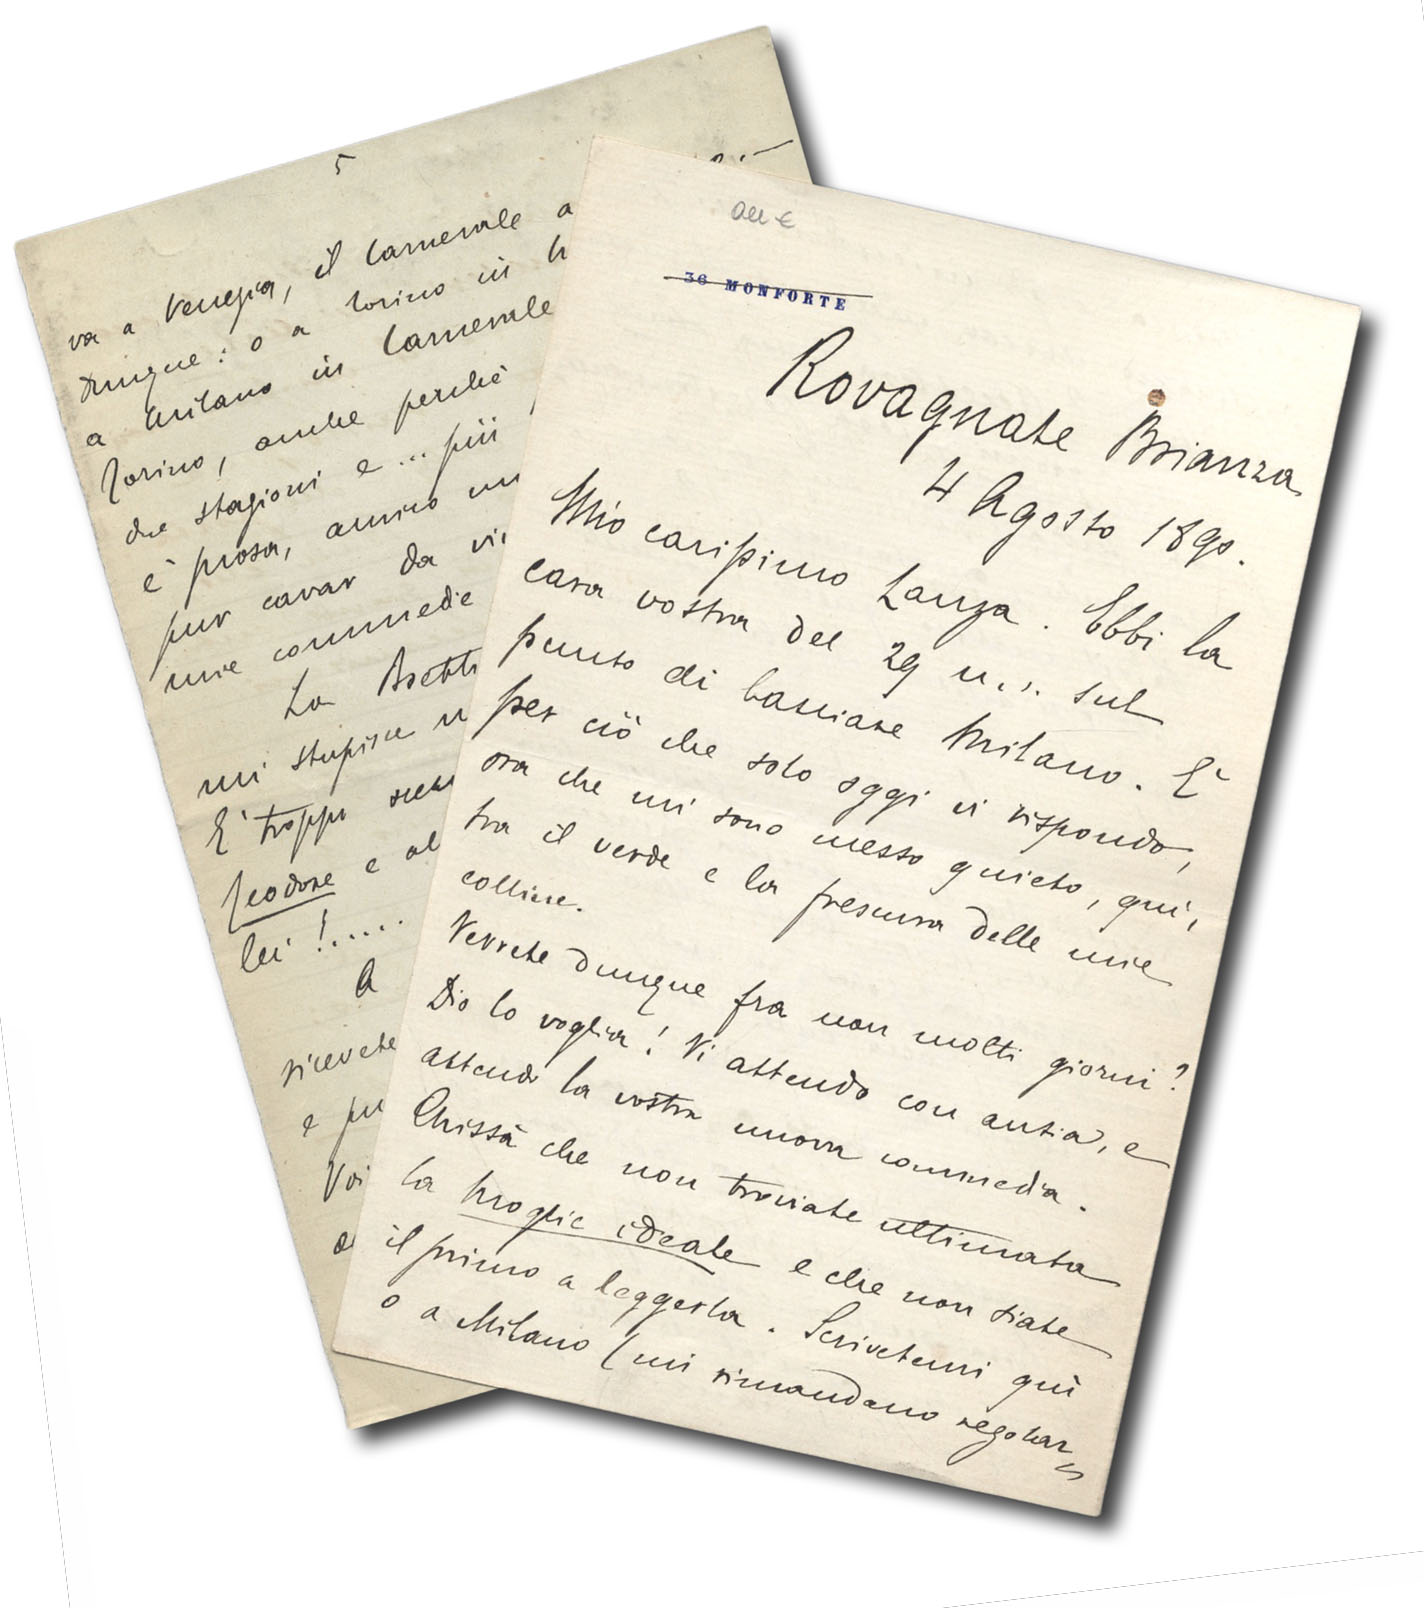 5
va a Venezia, il Carnevale a
Dunque: o a Torino in
a Milano in Carnevale
Torino, anche perchè
due stagioni e ... più
è prosa, amico
pur cavar da
mie commedie
La
mi stupisce
E' troppo
Teodora e al
lei!.....
A
ricevete
e
Voi
36 MONFORTE
Rovagnate Brianza
4 Agosto 1890.
Mio carissimo Lanza. Ebbi la
cara vostra del 29 u.s. sul
punto di lasciare Milano. E'
per ciò che solo oggi vi rispondo,
ora che mi sono messo quieto, qui,
tra il verde e la frescura delle mie
colline.
Verrete dunque fra non molti giorni?
Dio lo voglia! Vi attendo con ansia, e
attendo la vostra nuova commedia.
Chissà che non troviate ultimata
la Moglie ideale e che non siate
il primo a leggerla. Scrivetemi quì
o a Milano (mi rimandano regolar=